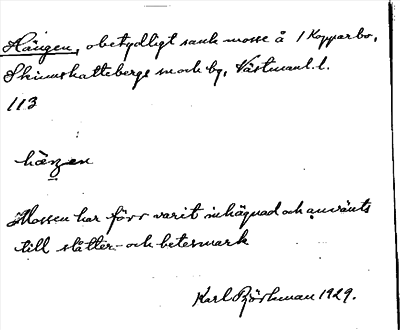 Hängen, obetydligt sank mosse å 1 Kopparbo,
Skinnskattebergs sn och bg, Västmanl. l.
113
häŋen
Mossen har förr varit inhägnad och använts
till slåtter- och betesmark
Karl Björkman 1929.